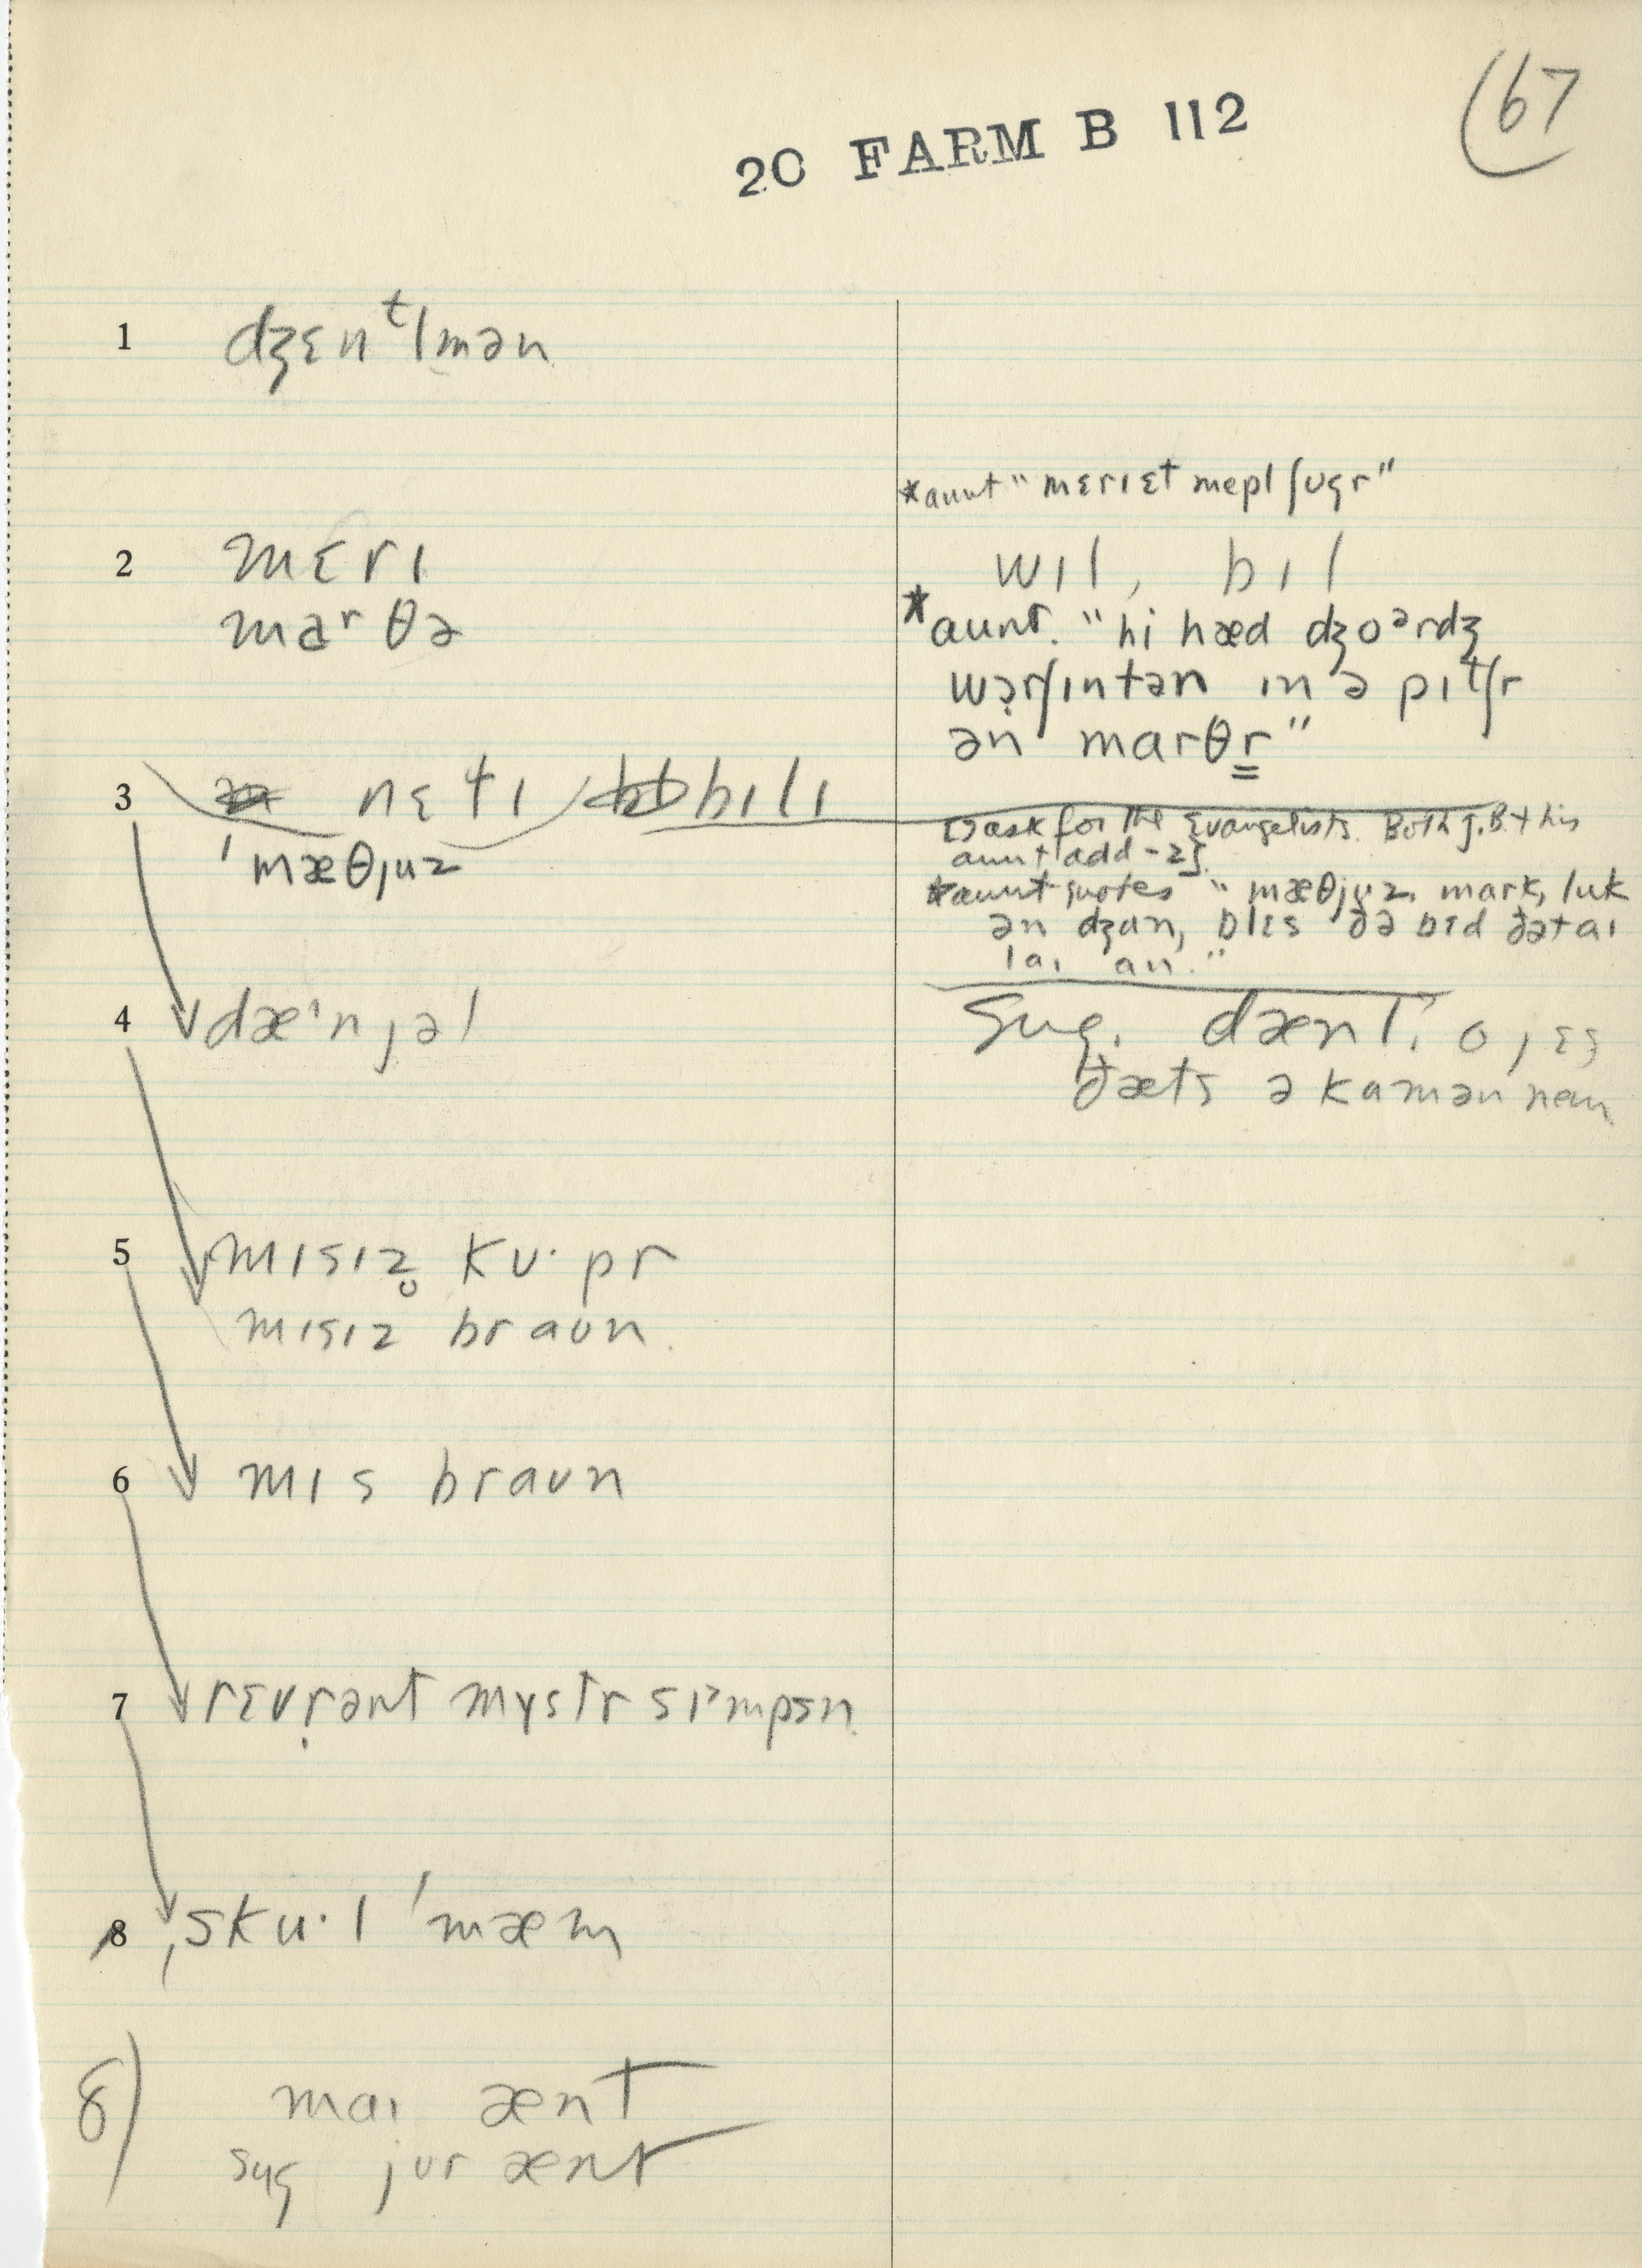 67
20 FARM B 112
1 dʒɛnᵗl̩mən
*aunt "mɛrɪɛt mepl ʃʊgr"
2 mɛrɪ wɪl, bɪl
marθə
*aunt. "hi hæd dʒoᵊrdʒ
wərʃɪntən ɪn ə pɪtʃr
ən marθr"
3 nɛtɪ bɪlɪ
ˈmæθjuz
[ask for the Evangelists. Both J.B. + his
aunt add -z].
*aunt quotes "mæθjuz, mark, luk
ən dʒan, blɛs ðə bɛd ðət aɪ
laɪ an."
4 dæˑnjəl
Sug. dænl. o jɛs
ðæts ə kamən nem
5 mɪsɪz̥ kʊˑpr
mɪsɪz braʊn
6 mɪs braʊn
7 rɛvr̩ənt mʏstr sɪᵊmpsn
8 ˌskuˑl ˈmæm
8) maɪ ænt
sʌg jʊr ænt